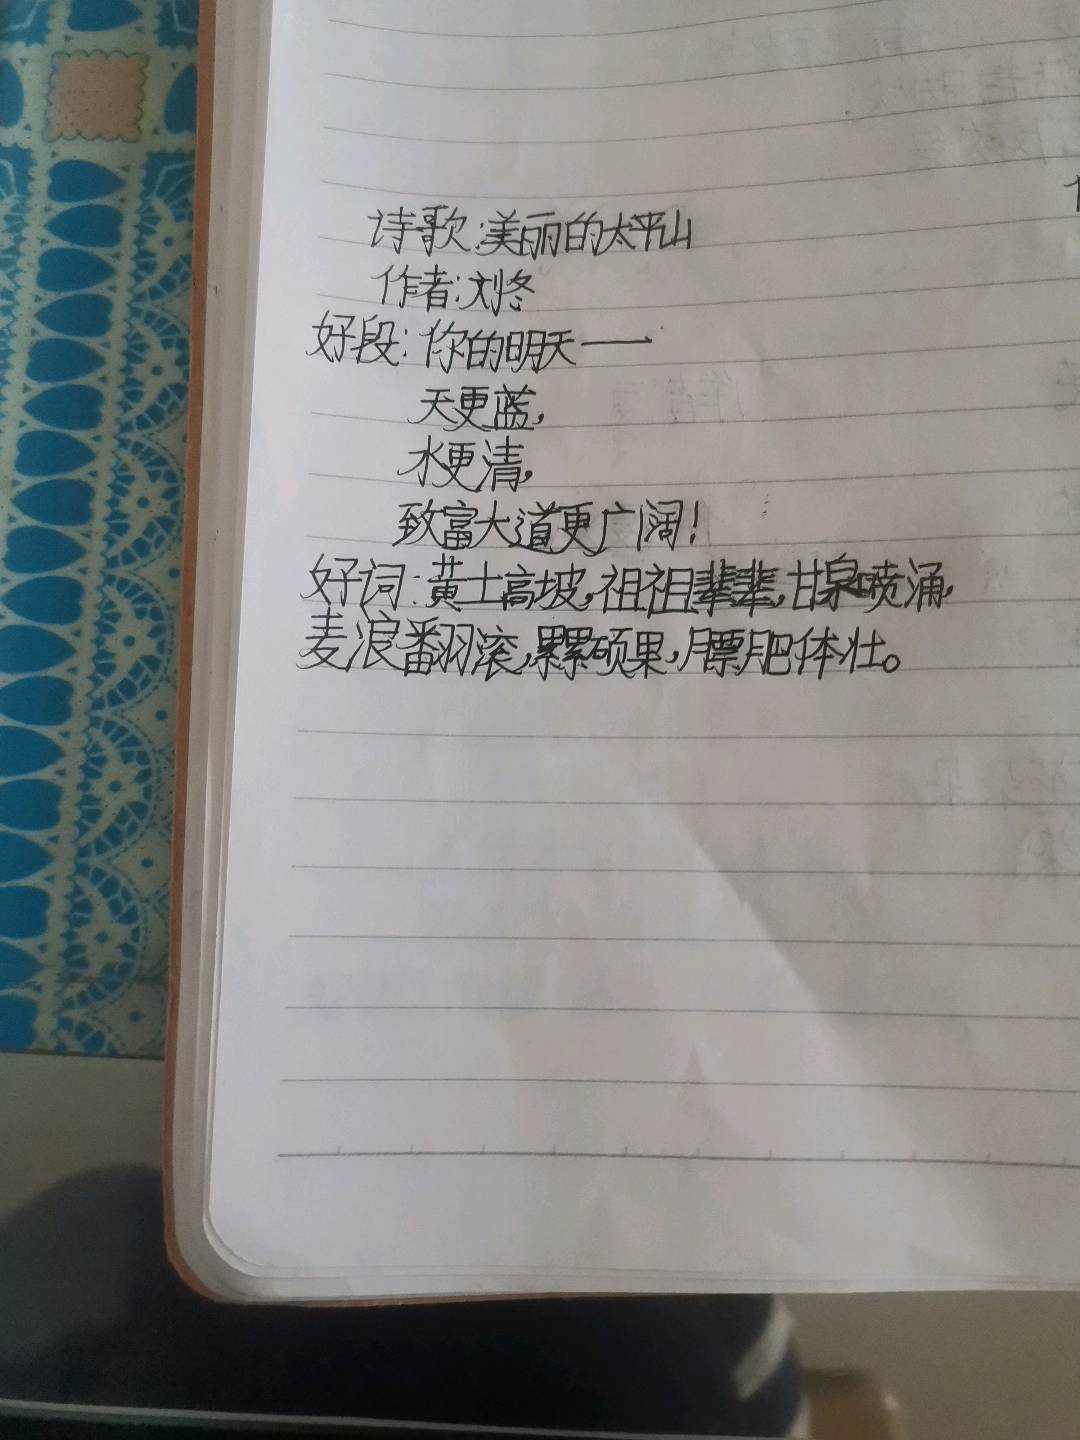 诗歌:美丽的太平山
作者:刘冬
好段:你的明天——
天更蓝,
水更清,
致富大道更广阔!
好词:黄土高坡,祖祖辈辈,甘泉喷涌,
麦浪翻滚,累累硕果,膘肥体壮。